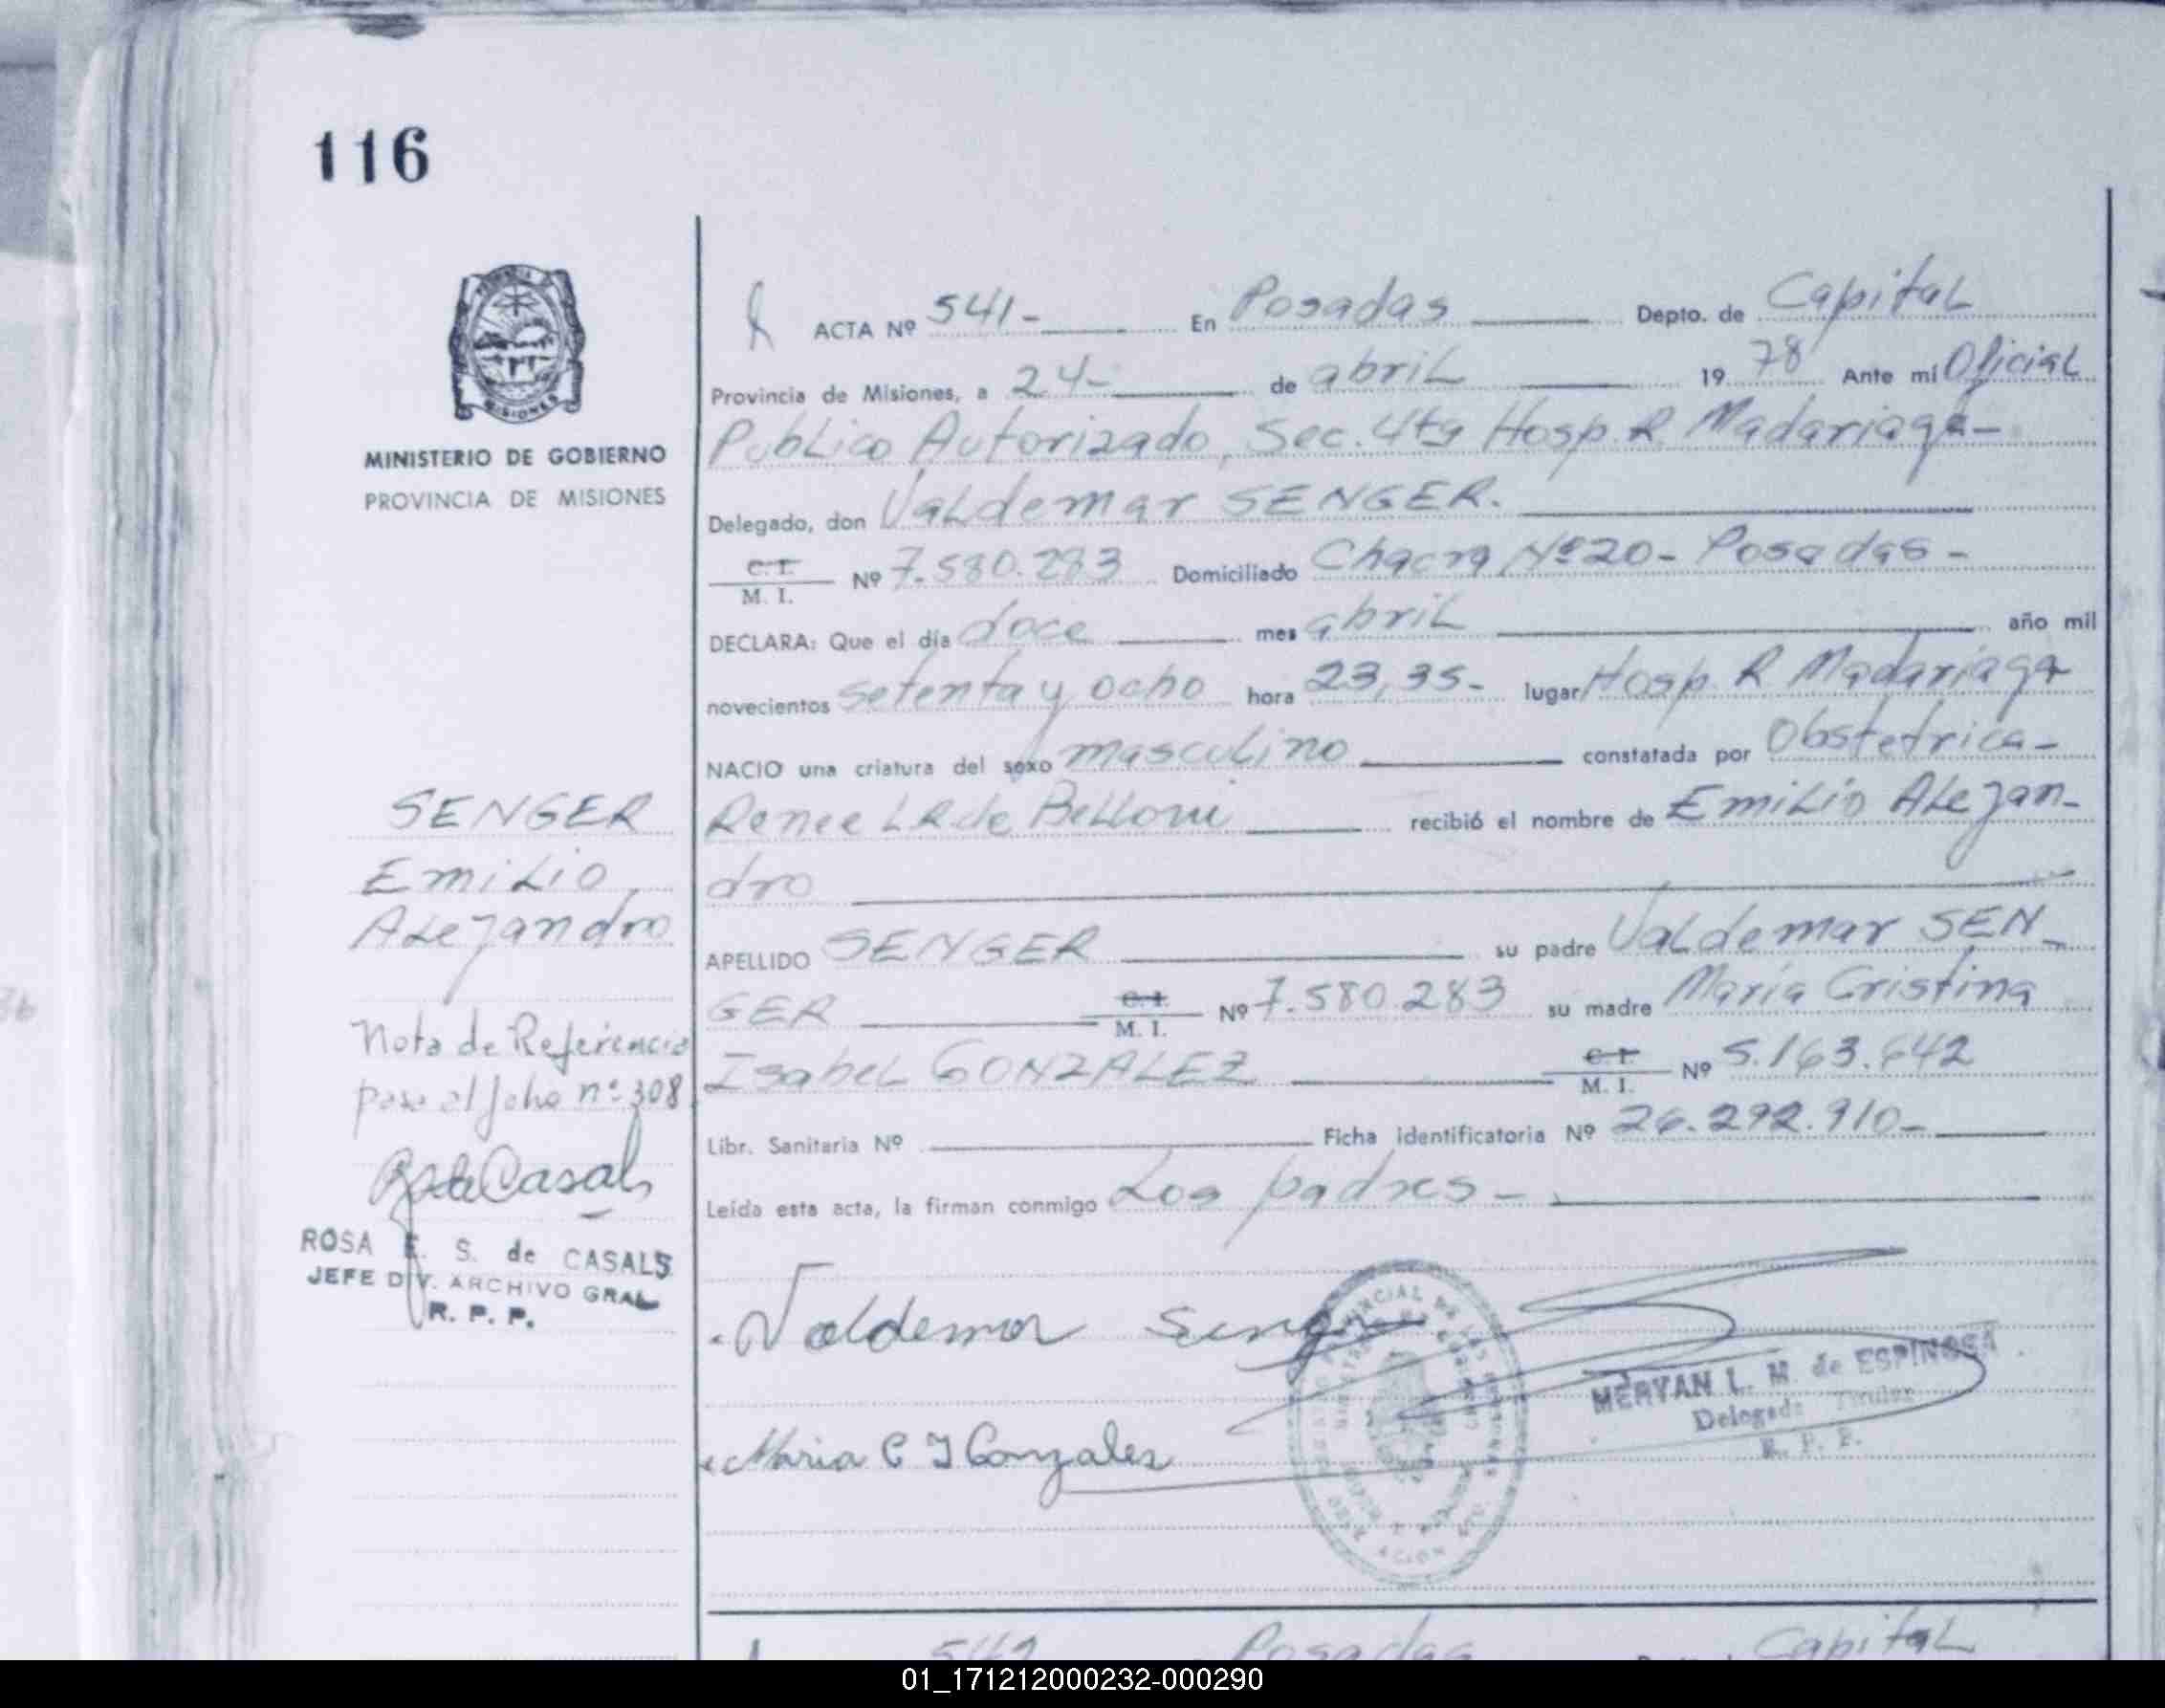 116
MISIONES
MINISTERIO DE GOBIERNO
PROVINCIA DE MISIONES
SENGER
Emilio
Alejandro
Nota de Referencia
pasa al folio nº 308
ROSA E. S. de CASALS
JEFE DIV. ARCHIVO GRAL
R. P. P.
ACTA Nº 541- En Posadas Depto. de Capital
Provincia de Misiones, a 24- de abril 19 78 Ante mí Oficial
Publico Autorizado, Sec. 4ta Hosp. R. Madariaga-
Delegado, don Valdemar SENGER.
C. I.
M. I. Nº 7.580.283 Domiciliado Chacra Nº 20- Posadas-
DECLARA: Que el día doce mes abril año mil
novecientos setenta y ocho hora 23,35- lugar Hosp. R Madariaga
NACIO una criatura del sexo masculino constatada por Obstetrica-
Renee LR de Belloni recibió el nombre de Emilio Alejan-
dro
APELLIDO SENGER su padre Valdemar SEN-
GER C. I.
M. I. Nº 7.580.283 su madre María Cristina
Isabel GONZALEZ C. I.
M. I. Nº 5.163.642
Libr. Sanitaria Nº Ficha identificatoria Nº 26.292.910-
Leída esta acta, la firman conmigo Los padres-
Valdemar Senger
MERYAN L. M. de ESPINOSA
Delegada Titular
R. P. P.
Maria C I Gonzalez
542 Posadas Capital
01_171212000232-000290